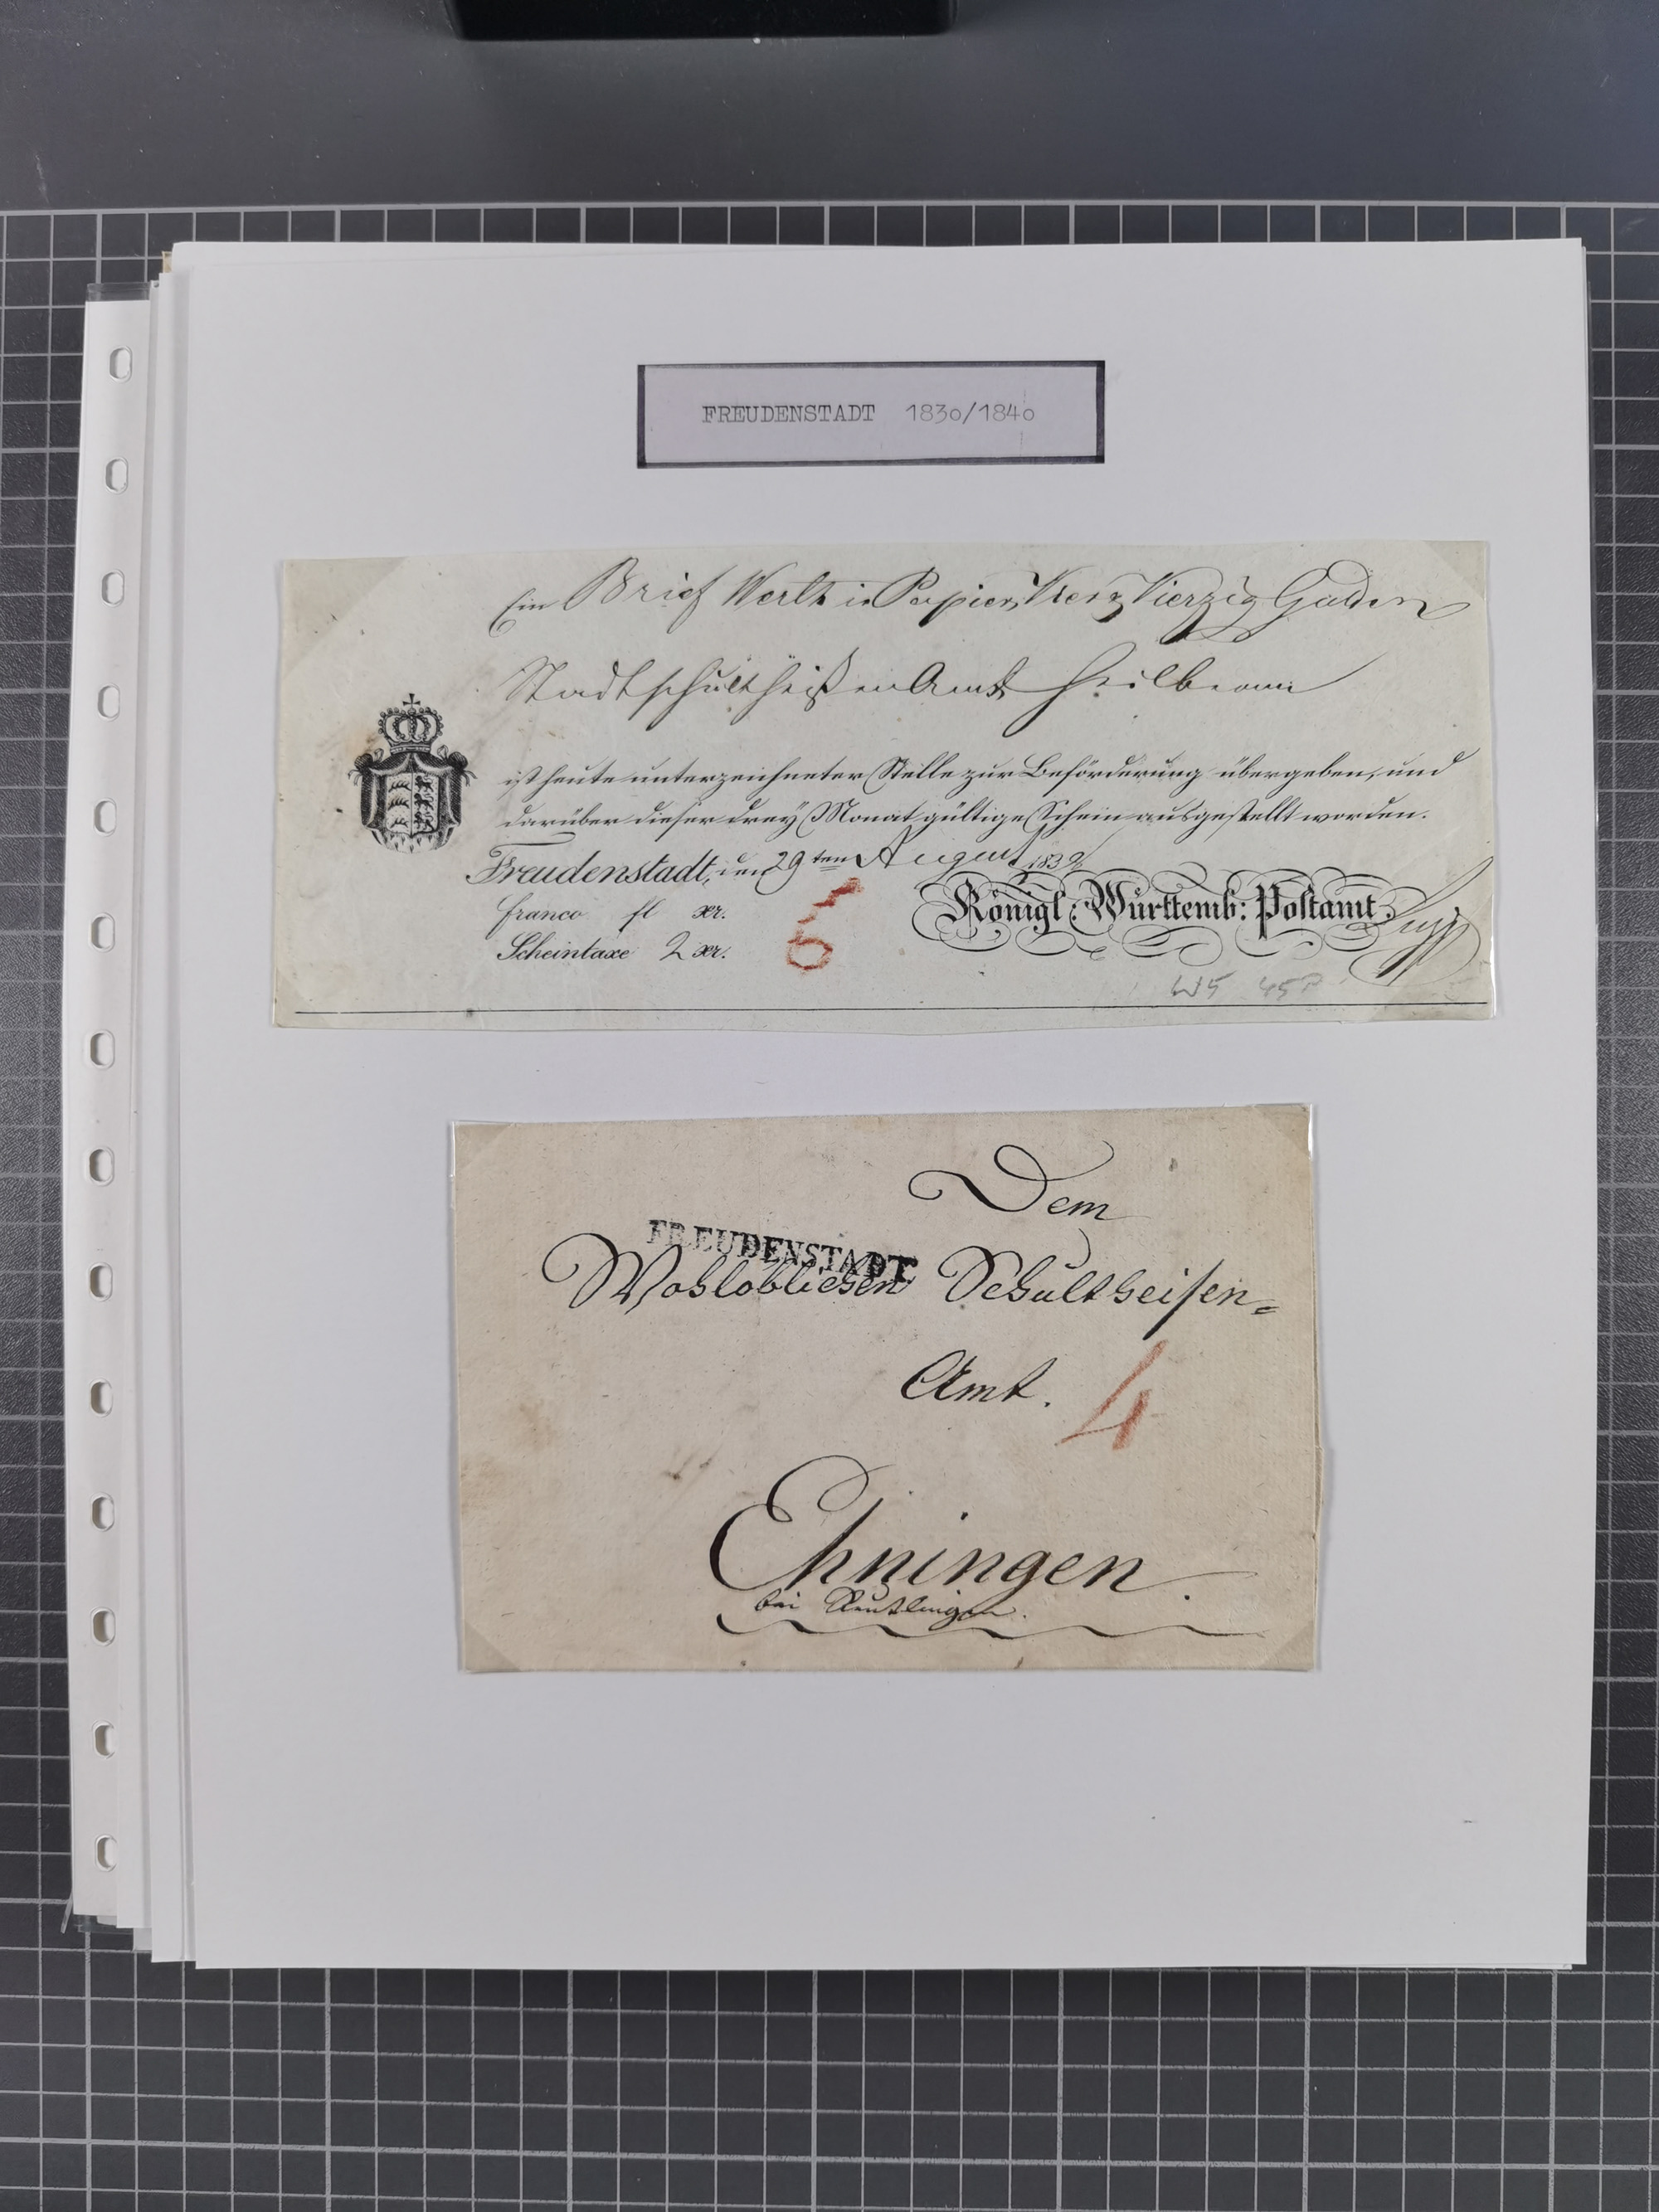 FREUDENSTADT 1830/1840
Ein Brief Werth in Papier Vierzig Gulden
Stadtschultheißen Amt Heilbronn
ist heute unterzeichneter Stelle zur Beförderung übergeben, und
darüber dieser drey Monat gültige Schein ausgestellt worden.
Freudenstadt, den 29ten August 1839
franco fl xr.
Königl: Württemb: Postamt.
Scheintaxe 2 xr.
6
W5 45P
Dem
FREUDENSTADT
Wohlöblichen Schultheisen=
Amt.
4
Ehningen.
bei Reutlingen.